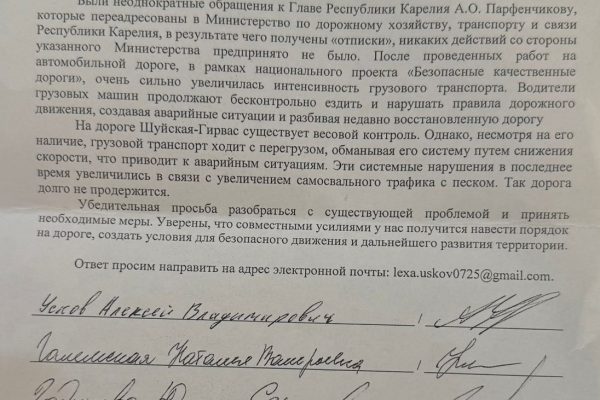 Были неоднократные обращения к Главе Республики Карелия А.О. Парфенчикову,
которые переадресованы в Министерство по дорожному хозяйству, транспорту и связи
Республики Карелия, в результате чего получены «отписки», никаких действий со стороны
указанного Министерства предпринято не было. После проведенных работ на
автомобильной дороге, в рамках национального проекта «Безопасные качественные
дороги», очень сильно увеличилась интенсивность грузового транспорта. Водители
грузовых машин продолжают бесконтрольно ездить и нарушать правила дорожного
движения, создавая аварийные ситуации и разбивая недавно восстановленную дорогу
На дороге Шуйская-Гирвас существует весовой контроль. Однако, несмотря на его
наличие, грузовой транспорт ходит с перегрузом, обманывая его систему путем снижения
скорости, что приводит к аварийным ситуациям. Эти системные нарушения в последнее
время увеличились в связи с увеличением самосвального трафика с песком. Так дорога
долго не продержится.
Убедительная просьба разобраться с существующей проблемой и принять
необходимые меры. Уверены, что совместными усилиями у нас получится навести порядок
на дороге, создать условия для безопасного движения и дальнейшего развития территории.
Ответ просим направить на адрес электронной почты: lexa.uskov0725@gmail.com.
Усков Алексей Владимирович /
Галемская Наталья Валерьевна /